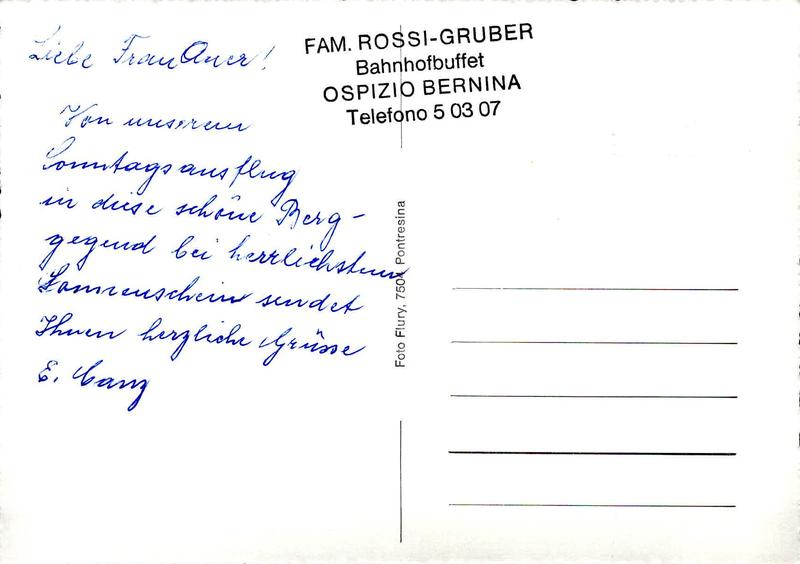 Liebe Frau Auer!
Von unserem
Sonntagsausflug
in diese schöne Berg-
gegend bei herrlichstem
Sonnenschein sendet
Ihnen herzliche Grüsse
E. Canz
FAM. ROSSI-GRUBER
Bahnhofbuffet
OSPIZIO BERNINA
Telefono 5 03 07
Foto Flury, 7504 Pontresina